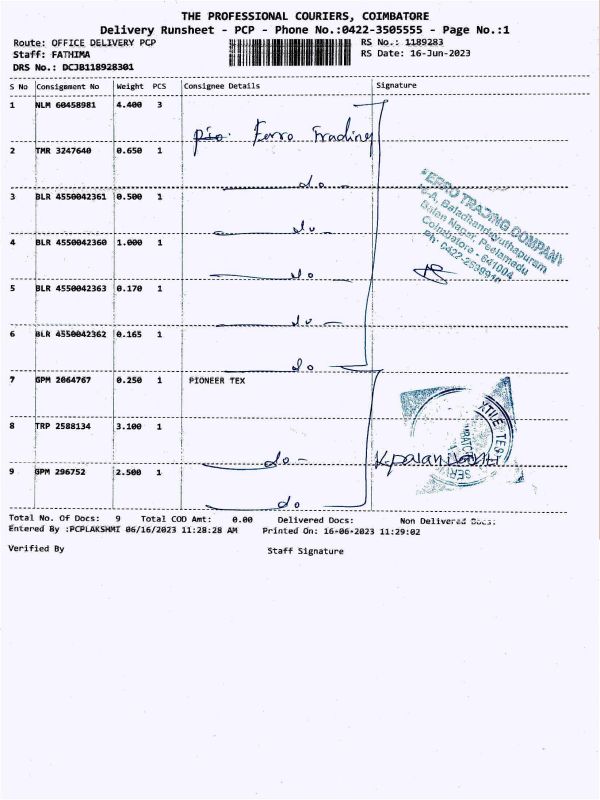 THE PROFESSIONAL COURIERS, COIMBATORE
Delivery Runsheet - PCP - Phone No.:0422-3505555 - Page No.:1
Route: OFFICE DELIVERY PCP RS No.: 1189283
Staff: FATHIMA RS Date: 16-Jun-2023
DRS No.: DCJB118928301
S No Consignment No Weight PCS Consignee Details Signature
1 NLM 60458981 4.400 3
Ferro Trading
2 TMR 3247640 0.650 1
do
3 BLR 4550042361 0.500 1
do
4 BLR 4550042360 1.000 1
do
5 BLR 4550042363 0.170 1
do
6 BLR 4550042362 0.165 1
do
FERRO TRADING COMPANY
Balan Nagar, Peelamedu
Coimbatore - 641004
7 GPM 2064767 0.250 1 PIONEER TEX
8 TRP 2588134 3.100 1
do
K.palanisamy
9 GPM 296752 2.500 1
do
Total No. Of Docs: 9 Total COD Amt: 0.00 Delivered Docs: Non Delivered Docs:
Entered By :PCPLAKSHMI 06/16/2023 11:28:28 AM Printed On: 16-06-2023 11:29:02
Verified By Staff Signature